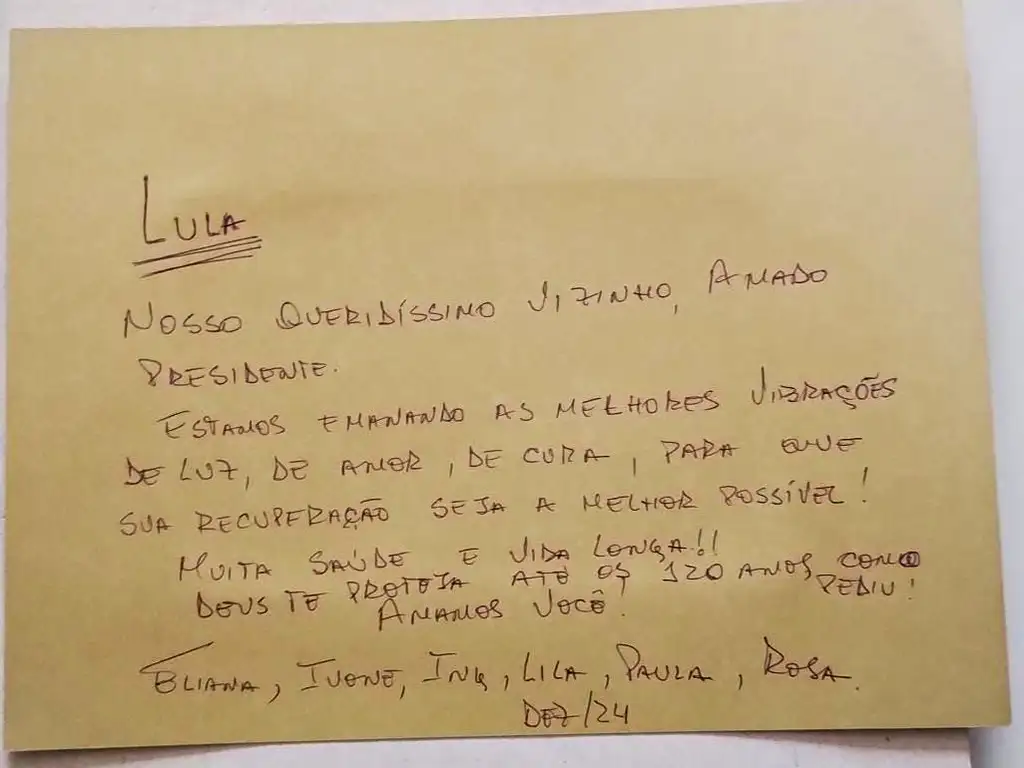 LULA
NOSSO QUERIDÍSSIMO VIZINHO, AMADO
PRESIDENTE.
ESTAMOS EMANANDO AS MELHORES VIBRAÇÕES
DE LUZ, DE AMOR, DE CURA, PARA QUE
SUA RECUPERAÇÃO SEJA A MELHOR POSSÍVEL!
MUITA SAÚDE E VIDA LONGA!!
DEUS TE PROTEJA ATÉ OS 120 ANOS COMO
PEDIU!
AMAMOS VOCÊ!
ELIANA, IVONE, LILA, PAULA, ROSA.
DEZ/24